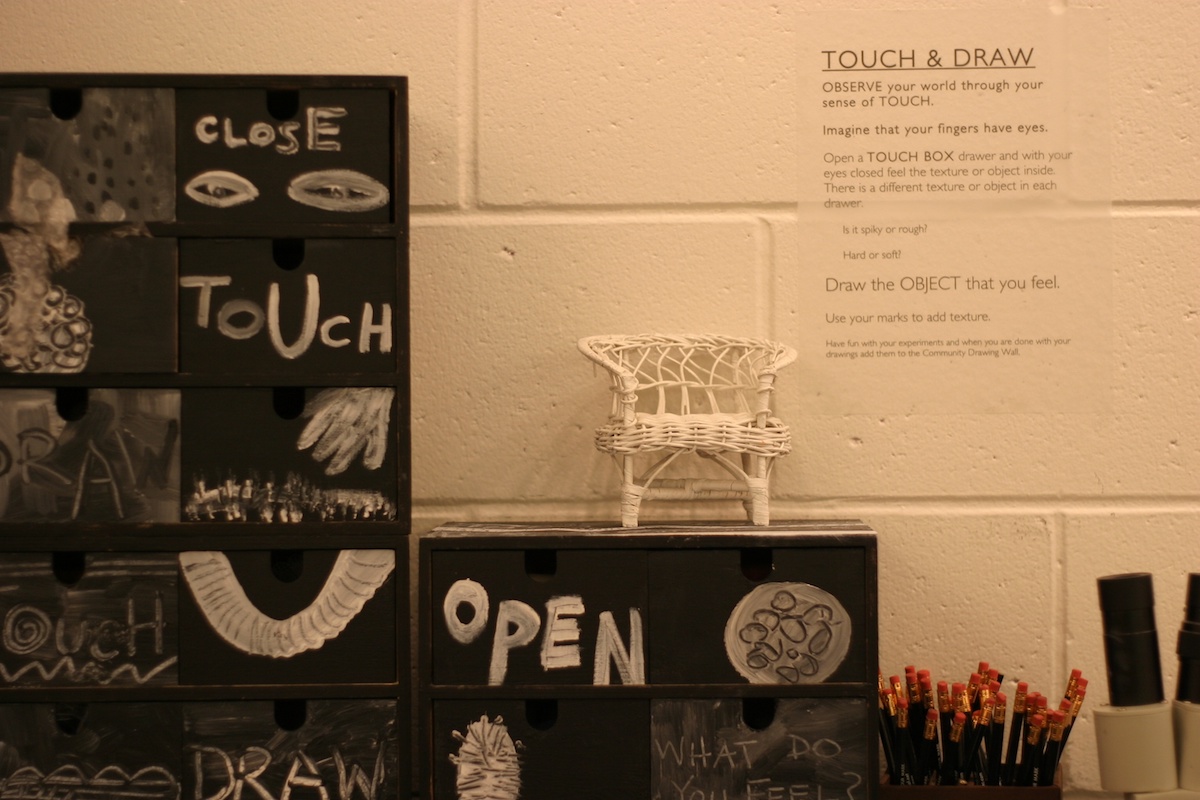 CLOSE
TOUCH
OUCH
DRAW
OPEN
WHAT DO
YOU FEEL?
TOUCH & DRAW
OBSERVE your world through your
sense of TOUCH.
Imagine that your fingers have eyes.
Open a TOUCH BOX drawer and with your
eyes closed feel the texture or object inside.
There is a different texture or object in each
drawer.
Is it spiky or rough?
Hard or soft?
Draw the OBJECT that you feel.
Use your marks to add texture.
Have fun with your experiments and when you are done with your
drawings add them to the Community Drawing Wall.